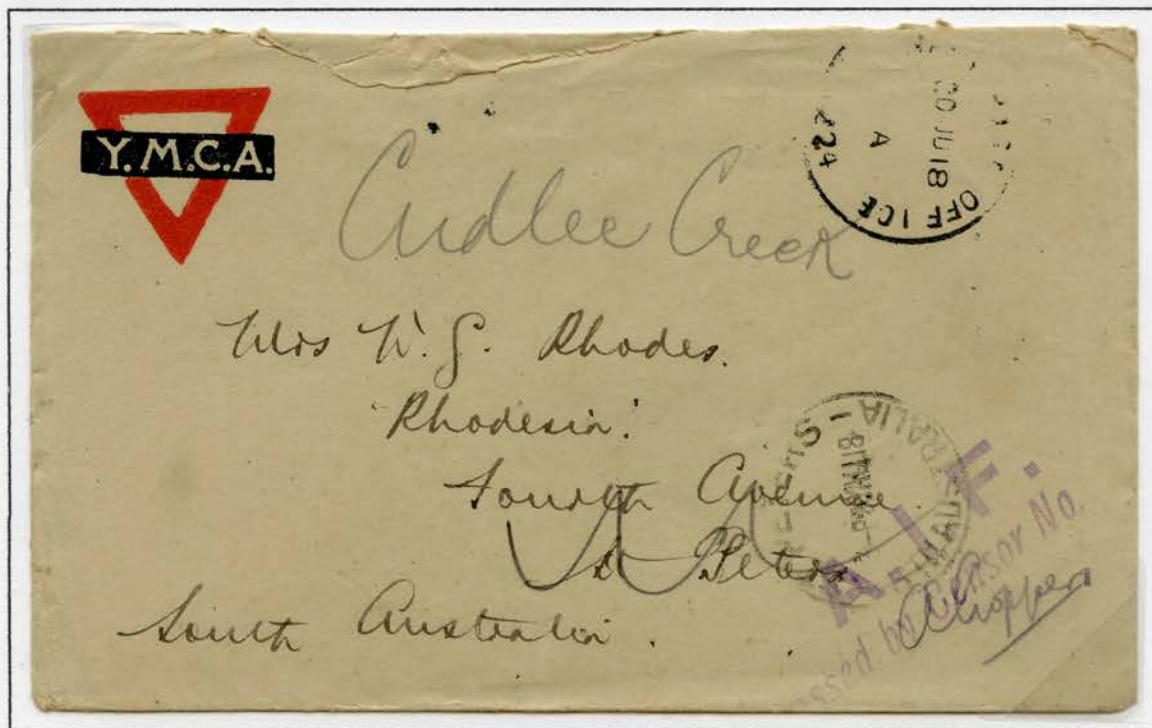 Y.M.C.A.
OFFICE
20 JU 18
A
224
Cudlee Creek
Mrs W. G. Rhodes.
'Rhodesia'.
Fourth Avenue.
St Peters
South Australia.
A.I.F.
Passed by Censor No.